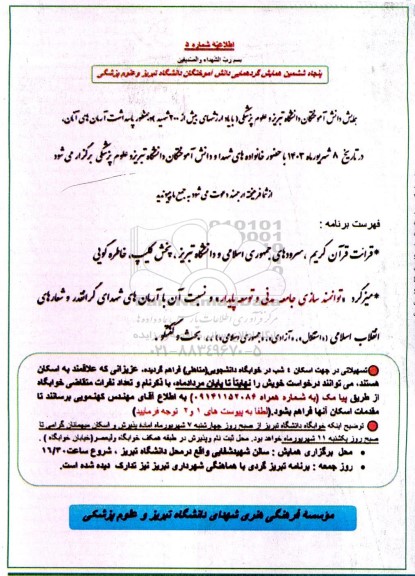 اطلاعیه شماره ۵
بسم رب الشهداء والصدیقین
پنجاه ششمین همایش گردهمایی دانش آموختگان دانشگاه تبریز و علوم پزشکی
همایش دانش آموختگان دانشگاه تبریز و علوم پزشکی با یاد ارزشهای بیش از ۲۰۰ شهید و بمنظور پاسداشت آرمان های آنان،
در تاریخ ۸ شهریور ماه ۱۴۰۳ با حضور خانواده های شهدا و دانش آموختگان دانشگاه تبریز و علوم پزشکی برگزار می شود
از شما فرهیخته ارجمند دعوت می شود به جمع ما بپیوندید
فهرست برنامه :
*قرائت قرآن کریم ، سرودهای جمهوری اسلامی و دانشگاه تبریز، پخش کلیپ، خاطره گویی
*میزگرد توانمند سازی جامعه مدنی و توسعه پایدار و نسبت آن با آرمان های شهدای گرانقدر و شعارهای
انقلاب اسلامی (استقلال، آزادی، جمهوری اسلامی)، بحث و گفتگو
۰۲۱-۸۸۳۴۹۶۷۰-۵
تسهیلاتی در جهت اسکان ٤ شب در خوابگاه دانشجویی(متاهلی) فراهم گردیده، عزیزانی که علاقمند به اسکان
هستند، می توانند درخواست خویش را نهایتاً تا پایان مردادماه، با ذکرنام و تعداد نفرات متقاضی خوابگاه
از طریق پیا مک (به شماره همراه ۰۹۱۴۱۱۵۲۰۸۶) به اطلاع آقای مهندس کهنمویی برسانند تا
مقدمات اسکان آنها فراهم بشود.(لطفا به پیوست های ۱ و ۲ توجه فرمایید)
توضیح اینکه خوابگاه دانشگاه تبریز از صبح روز چهارشنبه ۷ شهریورماه آماده پذیرش و اسکان میهمانان گرامی تا
صبح روز یکشنبه ۱۱ شهریورماه خواهد بود. محل ثبت نام وپذیرش در طبقه همکف خوابگاه ولیعصر(خیابان خوابگاه ) .
محل برگزاری همایش : سالن شهیدشفایی واقع درمحل دانشگاه تبریز ، شروع ساعت ۱۶/۳۰
روز جمعه : برنامه تبریز گردی با هماهنگی شهرداری تبریز نیز تدارک دیده شده است.
مؤسسه فرهنگی هنری شهدای دانشگاه تبریز و علوم پزشکی